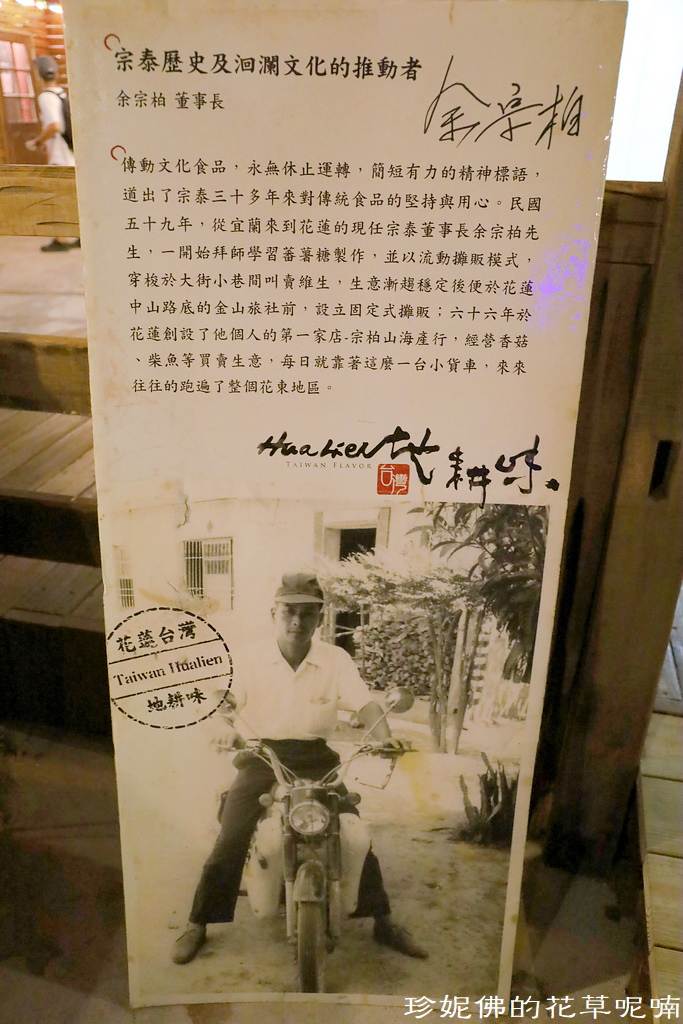 宗泰歷史及洄瀾文化的推動者
余宗柏 董事長
余宗柏
傳動文化食品，永無休止運轉，簡短有力的精神標語，
道出了宗泰三十多年來對傳統食品的堅持與用心。民國
五十九年，從宜蘭來到花蓮的現任宗泰董事長余宗柏先
生，一開始拜師學習蕃薯糖製作，並以流動攤販模式，
穿梭於大街小巷間叫賣維生，生意漸趨穩定後便於花蓮
中山路底的金山旅社前，設立固定式攤販；六十六年於
花蓮創設了他個人的第一家店-宗柏山海產行，經營香菇
、柴魚等買賣生意，每日就靠著這麼一台小貨車，來來
往往的跑遍了整個花東地區。
Hualien地耕味
TAIWAN FLAVOR
台灣
花蓮台灣
Taiwan Hualien
地耕味
珍妮佛的花草呢喃